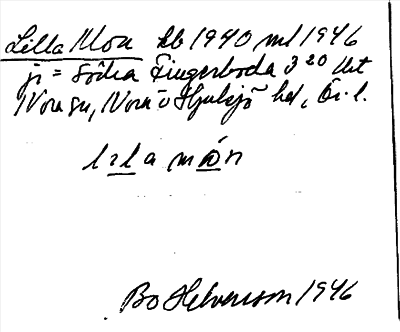 Lilla Mon hb 1940 ml 1946
jr = Södra Fingerboda 3 20 Utt
Nora sn, Nora o Hjulsjö hd, Ör. l.
lɪla mɷ́n
Bo Helverson 1946